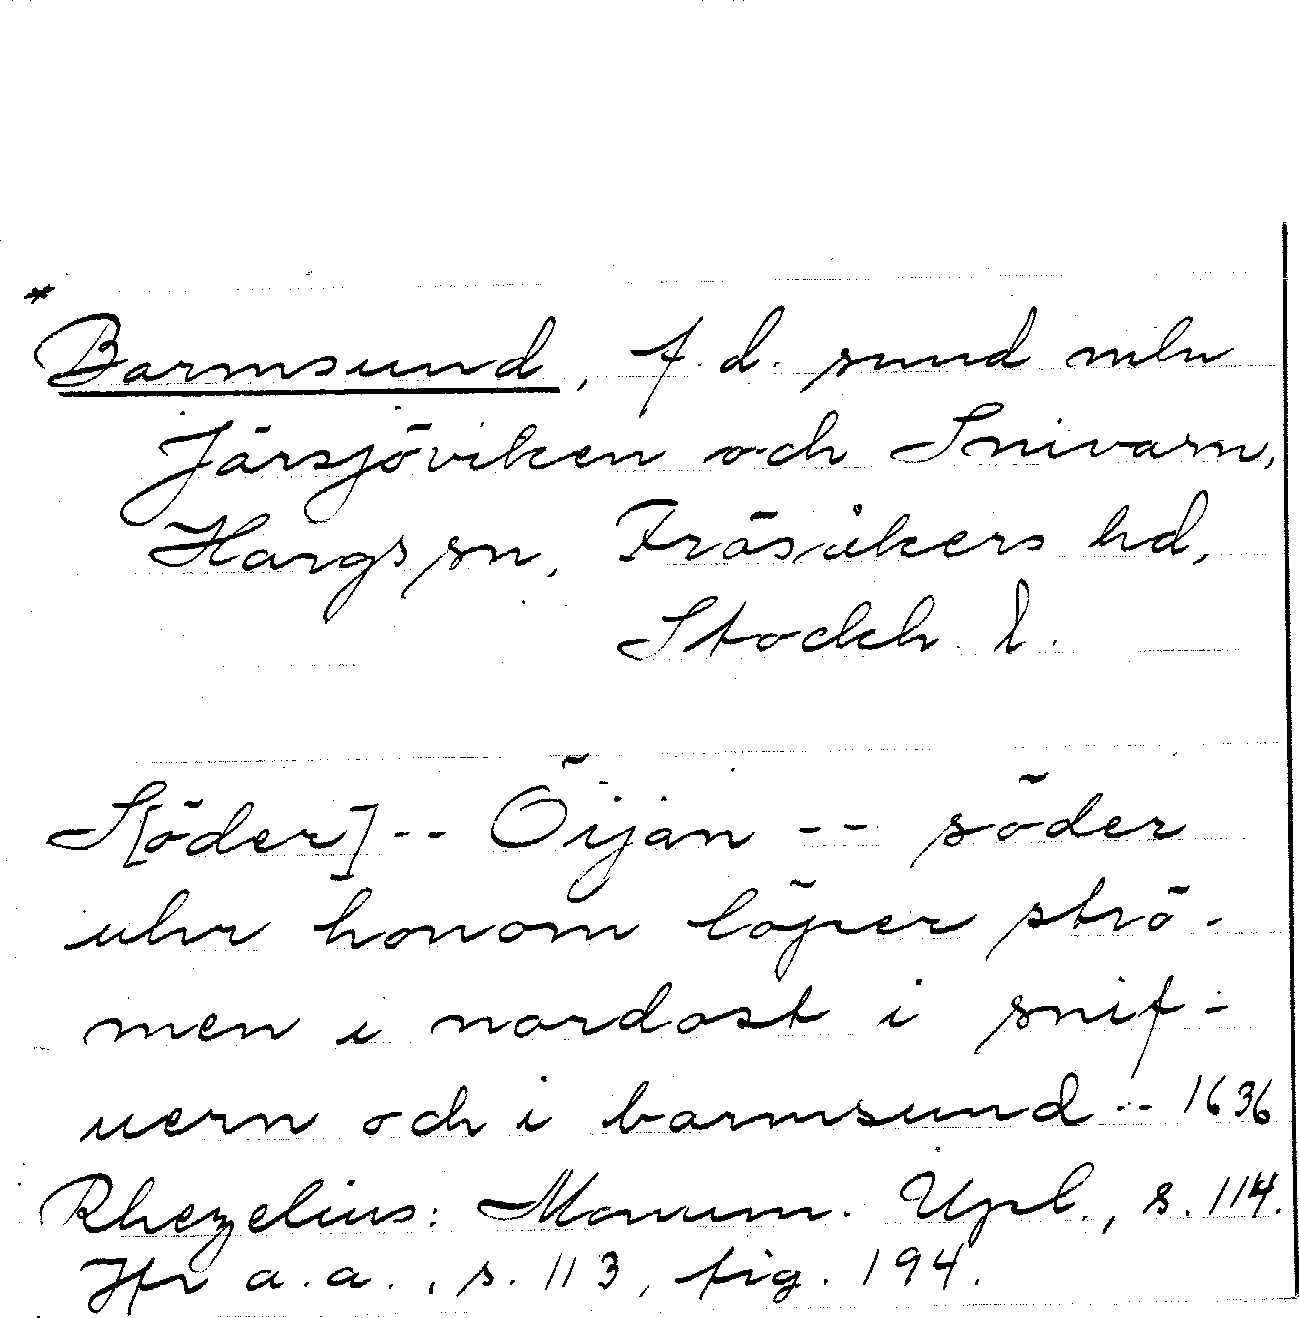 *
Barmsund, f.d. sund mln
Järsjöviken och Snivarn,
Hargs sn, Frösåkers hd,
Stockh. l.
S[öder] -- Öijan -- söder
uhr honom löper strö-
men i nordost i snif-
uern och i barmsund -- 1636
Rhezelius: Monum. Upl., s. 114.
Jfr a.a., s. 113, fig. 194.